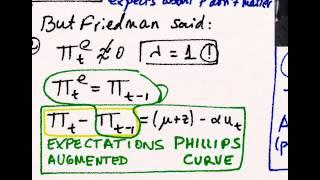 expects about P don't matter
But Friedman said:
πₜᵉ ≉ 0 λ = 1 !
πₜᵉ = πₜ₋₁
πₜ - πₜ₋₁ = (μ+z) - αuₜ
EXPECTATIONS PHILLIPS
AUGMENTED CURVE
A
(p